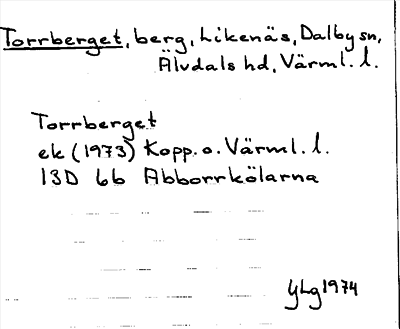 Torrberget, berg, Likenäs, Dalby sn,
Älvdals hd, Värml. l.
Torrberget
ek (1973) Kopp. o. Värml. l.
13D 6b Abborrkölarna
YLg 1974